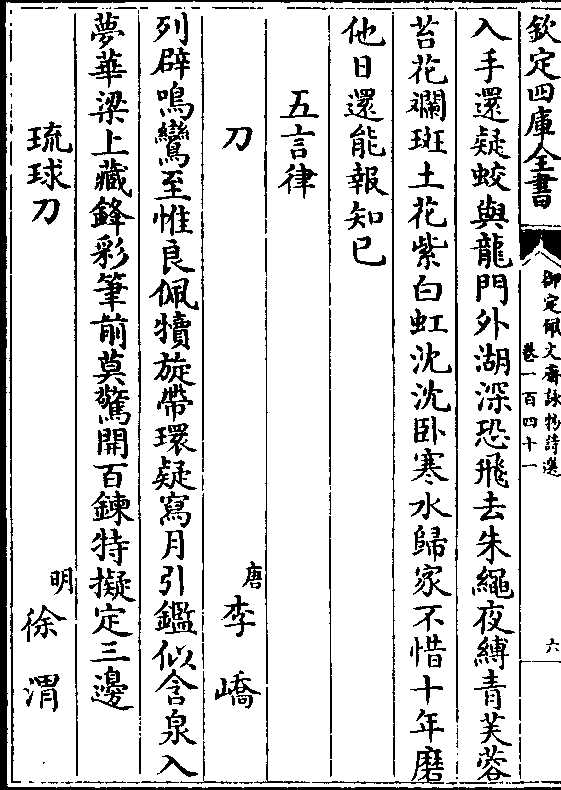 欽定四庫全書
御定佩文齋詠物詩選
卷一百四十一
六
入手還疑蛟與龍門外湖深恐飛去朱繩夜縛青芙蓉
苔花斕斑土花紫白虹沈沈卧寒水歸家不惜十年磨
他日還能報知已
五言律
刀
唐
李嶠
列辟鳴鸞至惟良佩犢旋帶環疑寫月引鑑似含泉入
夢華梁上藏鋒彩筆前莫驚開百鍊特擬定三邊
琉球刀
明
徐渭